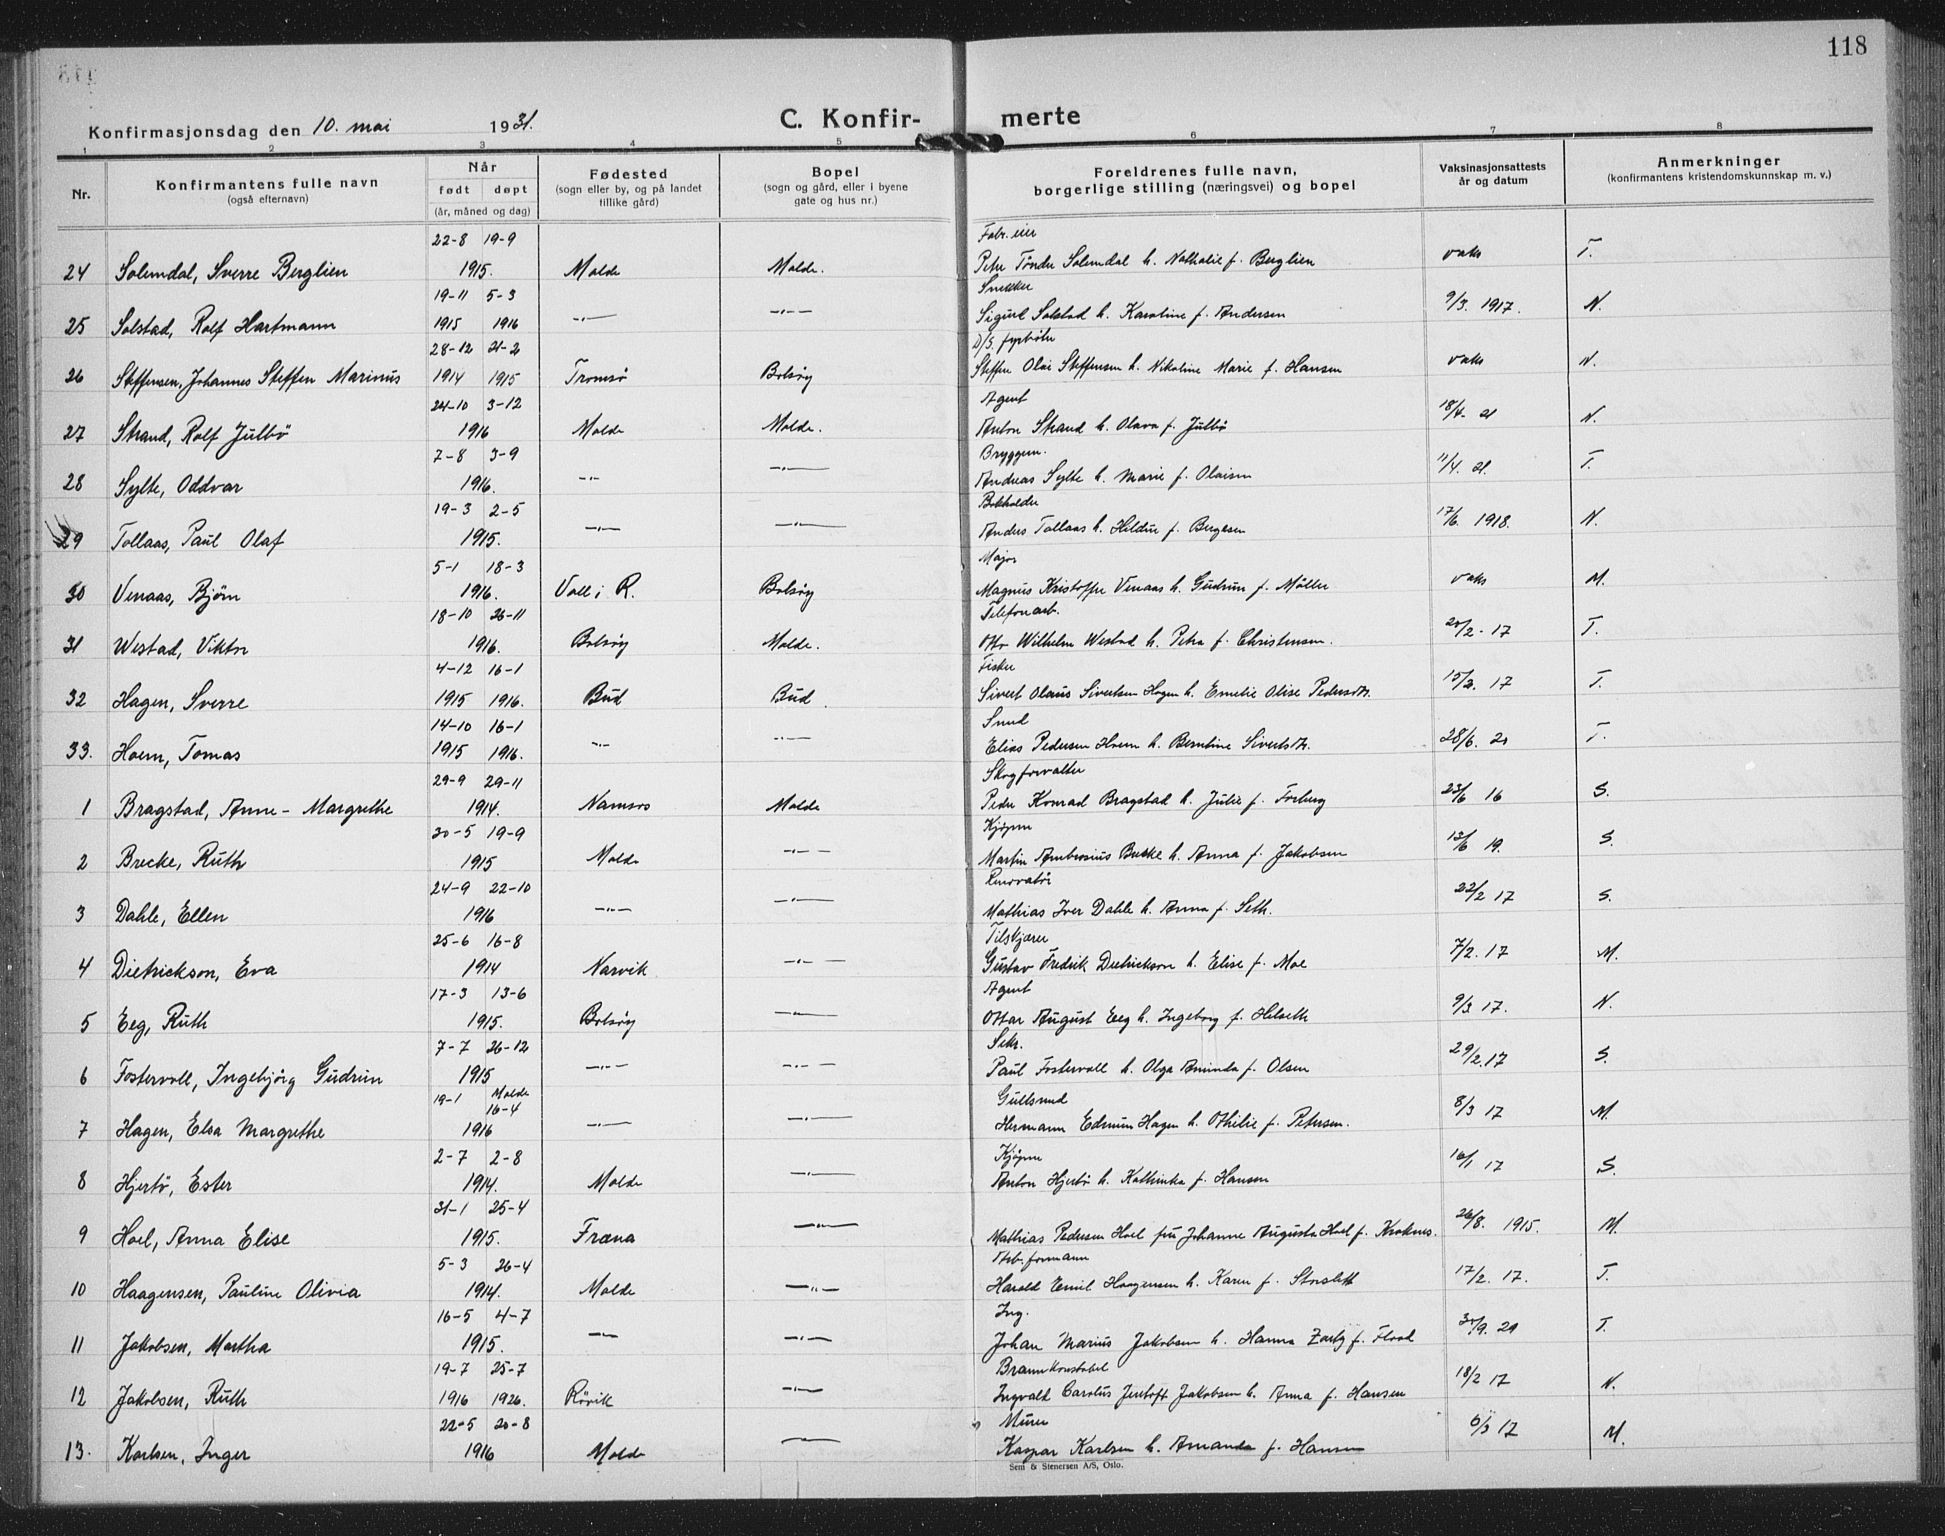 118
Konfirmasjonsdag den 10. mai 1931. C. Konfir- merte
1 2 3 4 5 6 7 8
Nr. Konfirmantens fulle navn (også efternavn) Når født døpt (år, måned og dag) Fødested (sogn eller by, og på landet tillike gård) Bopel (sogn og gård, eller i byene gate og hus nr.) Foreldrenes fulle navn, borgerlige stilling (næringsvei) og bopel Vaksinasjonsattests år og datum Anmerkninger (konfirmantens kristendomskunnskap m. v.)
22-8 19-9 Fabr. eier
24 Solemdal, Sverre Berglien 1915. Molde Molde. Peter Tønder Solemdal h. Nathalie f. Berglien vaks T.
19-11 5-3 Snekker
25 Solstad, Rolf Hartmann 1915 1916 -"- -"- Sigurd Solstad h. Karoline f. Andersen 9/3. 1917. N.
28-12 21-2 D/S. fyrbøter
26 Steffensen, Johannes Steffen Marinus 1914 1915 Tromsø Bolsøy Steffen Olai Steffensen h. Nikoline Marie f. Hansen vaks N.
24-10 3-12 Agent
27 Strand, Rolf Julbø 1916 Molde Molde. Anton Strand h. Olava f. Julbø 18/4- 21 N.
7-8 3-9 Bryggem.
28 Sylte, Oddvar 1916. -"- -"- Andreas Sylte h. Marie f. Olaisen 11/4. 21. T.
19-3 2-5 Bokholder
29 Tollaas, Paul Olaf 1915. -"- -"- Anders Tollaas h. Hildur f. Bergesen 17/6. 1918. N.
5-1 18-3 Major
30 Venaas, Bjørn 1916. Voll i R. Bolsøy Magnus Kristoffer Venaas h. Gudrun f. Møller vaks M.
18-10 26-11 Telefonarb.
31 Westad, Viktor 1916. Bolsøy Molde. Otto Wilhelm Westad h. Petra f. Christensen. 20/2-17 T.
4-12 16-1 Fisker
32 Hagen, Sverre 1915 1916. Bud Bud. Sivert Olaus Sivertsen Hagen h. Emelie Olise Pedersdtr. 15/2. 17 T.
14-10 16-1 Smed
33. Hoem, Tomas 1915 1916. -"- -"- Elias Pedersen Hoem h. Berntine Sivertsdtr. 28/6. 20 T.
29-9 29-11 Skogforvalter
1 Bragstad, Anne-Margrethe 1914. Namsos Molde Peder Konrad Bragstad h. Julie f. Forberg 23/6 16 S.
20-5 19-9 Kjøpm
2 Brecke, Ruth 1915 Molde -"- Martin Ambrosius Brekke h. Anna f. Jakobsen 12/6 19. S.
24-9 22-10 Renovatør
3 Dahle, Ellen 1916 -"- -"- Mathias Iver Dahle h. Anna f. Seth. 22/2 17 S.
25-6 16-8 Tilskjærer
4 Dietrickson, Eva 1914 Narvik -"- Gustav Fredrik Dietrickson h. Elise f. Moe 7/2. 17 M.
17-3 13-6 Agent
5 Eeg, Ruth 1915. Bolsøy -"- Ottar August Eeg h. Ingeborg f. Helseth 9/3 17. N.
7-7 26-12 Sekr.
6 Fostervoll, Ingebjørg Gudrun 1915 -"- -"- Paul Fostervoll h. Olga Aminda f. Olsen 29/2.17 S.
19-1 Molde 16-4 Gullsmed
7 Hagen, Elsa Margrethe 1916 -"- -"- Hermann Edmun Hagen h. Othelie f. Petersen. 8/3 17 M.
2-7 2-8 Kjøpm
8 Hjertø, Ester 1914. Molde -"- Anton Hjertø h. Kathinka f. Hansen 16/1 17 S.
31-1 25-4
9 Hoel, Anna Elise 1915. Fræna -"- Mathias Pedersen Hoel fru Johanne Augusta Hoel f. Kroknes. 26/8. 1915. M.
5-3 26-4 Arb. formann
10 Haagensen, Pauline Olivia 1914. Molde -"- Harald Emil Haagensen h. Karen f. Storsleth 17/2. 17. T.
16-5 4-7 Ing.
11 Jakobsen, Martha 1915. -"- -"- Johan Marius Jakobsen h. Hanna f. Flood 30/9. 20 T.
19-7 25-7 Brannkonstabel
12 Jakobsen, Ruth 1916 1926. Rørvik -"- Ingvald Carolus Jentoft Jakobsen h. Anna f. Hansen 18/2 17 N.
22-5 20-8 Murer
13. Karlsen, Inger 1916 Molde -"- Kaspar Karlsen h. Amanda f. Hansen 6/3 17 M.
Sem & Stenersen A/S, Oslo.